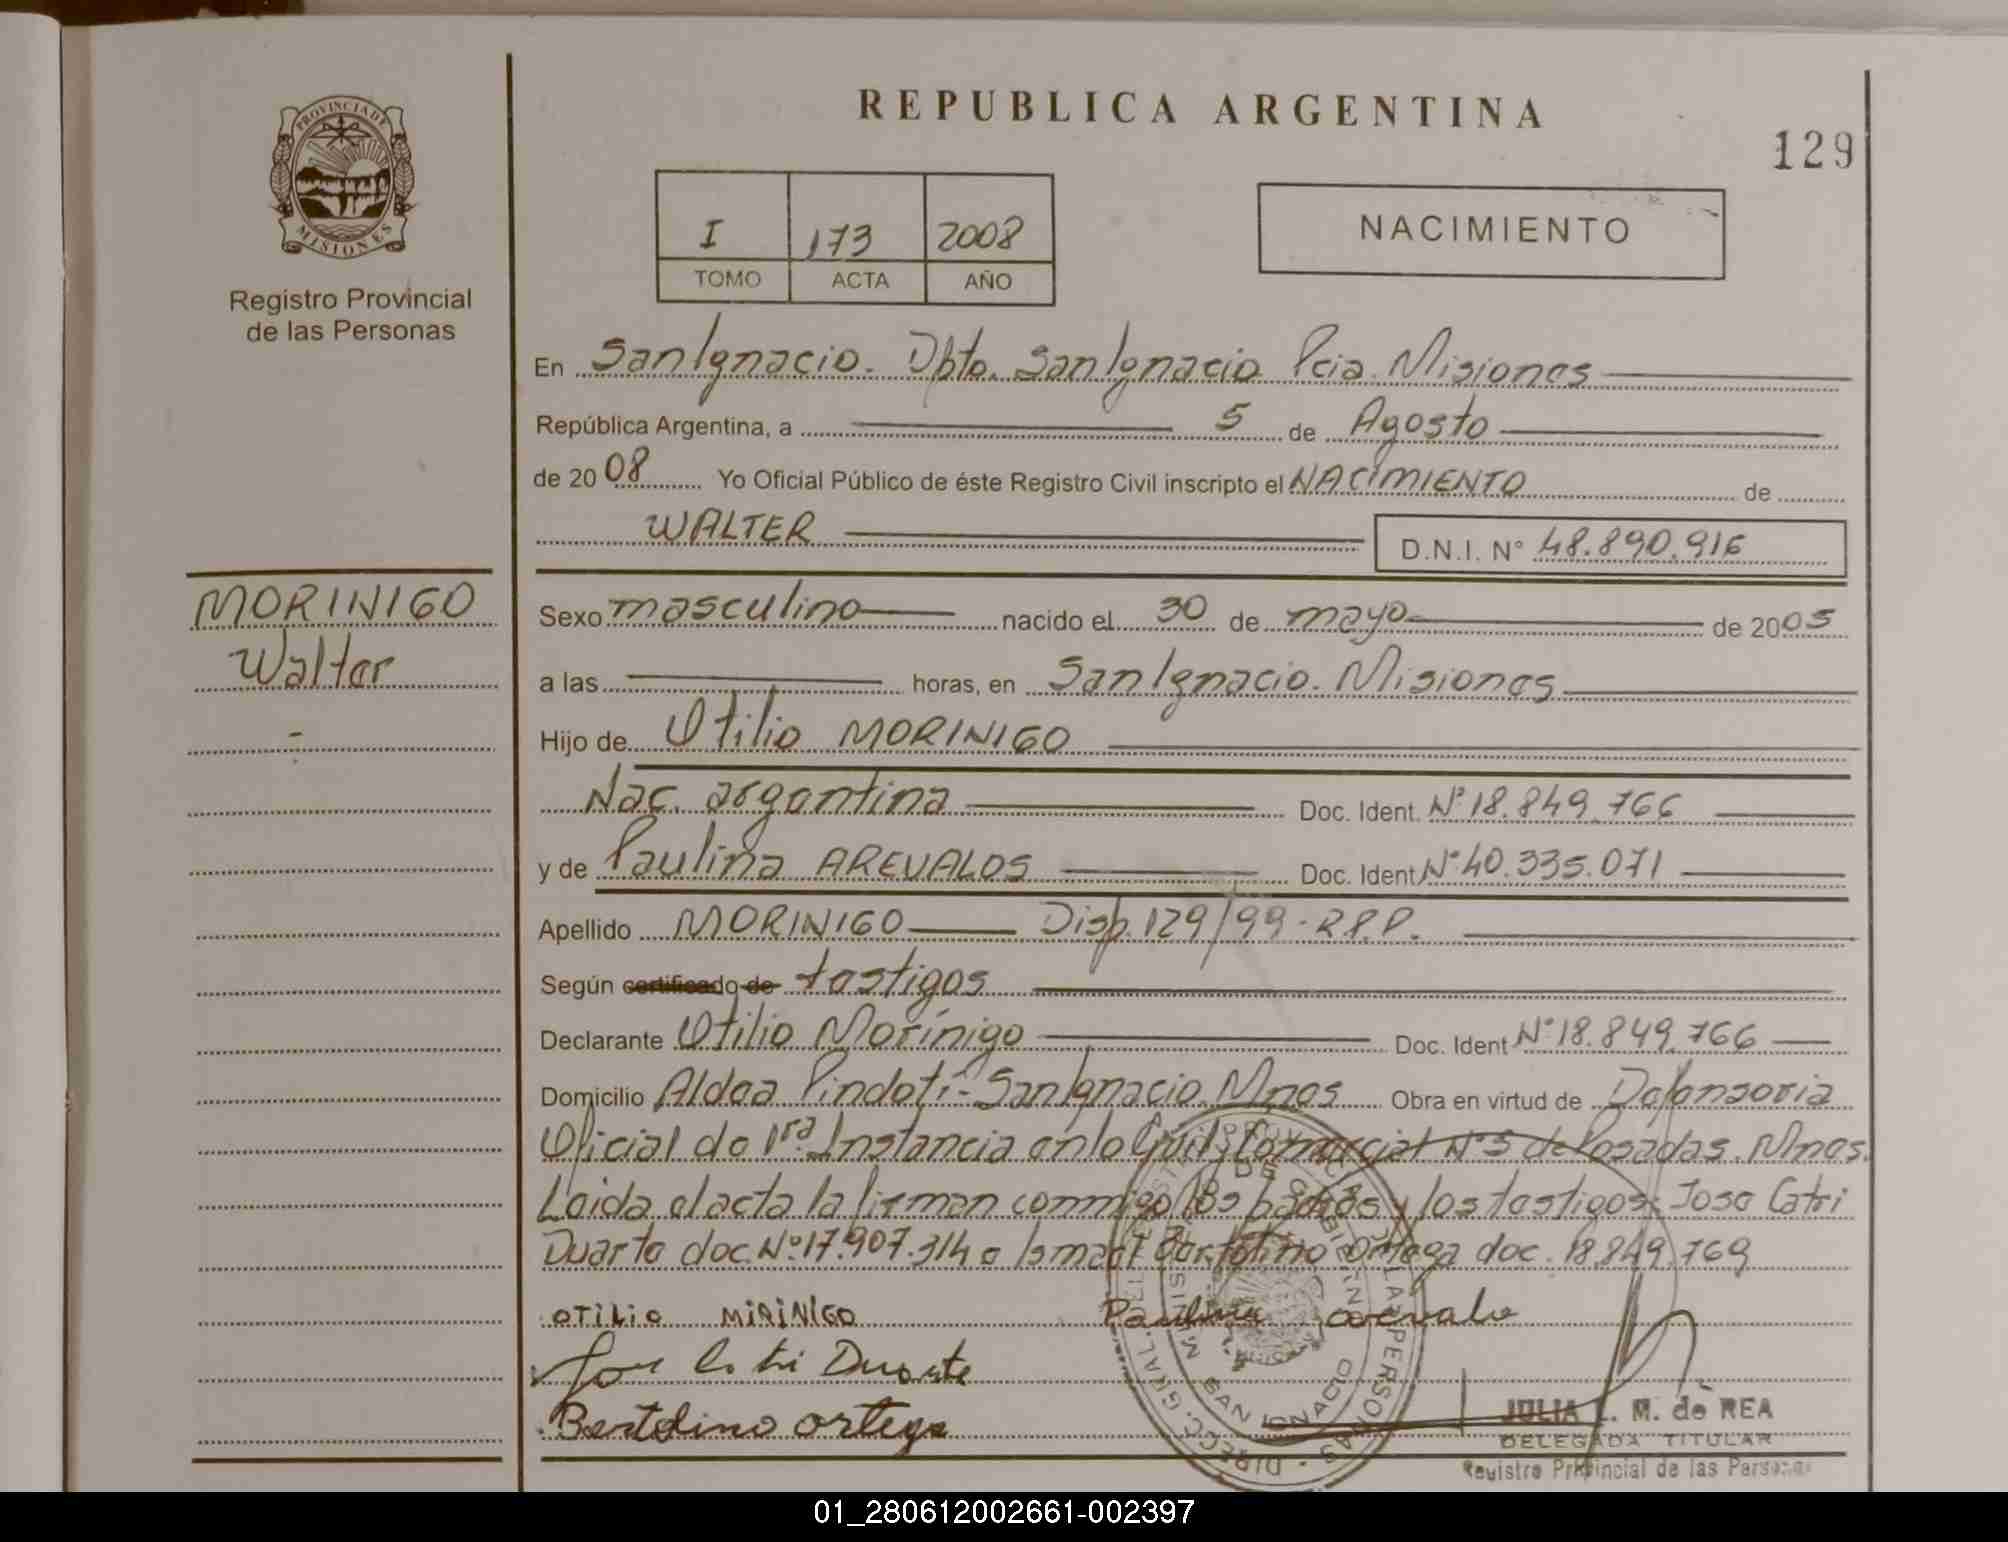 REPUBLICA ARGENTINA
129
PROVINCIA DE
MISIONES
Registro Provincial
de las Personas
I 173 2008
TOMO ACTA AÑO
NACIMIENTO
En San Ignacio. Dpto. San Ignacio Pcia. Misiones
República Argentina, a 5 de Agosto
de 2008 Yo Oficial Público de éste Registro Civil inscripto el NACIMIENTO de
WALTER D.N.I. N° 48.890.916
MORINIGO
Walter
Sexo masculino nacido el 30 de mayo de 2005
a las horas, en San Ignacio. Misiones
Hijo de Otilio MORINIGO
Nac. argentina Doc. Ident. N° 18.849.766
y de Paulina AREVALOS Doc. Ident N° 40.335.071
Apellido MORINIGO Disp. 129/99 - R.P.P.
Según certificado de testigos
Declarante Otilio Morínigo Doc. Ident N° 18.849.766
Domicilio Aldea Pindotí - San Ignacio. Mnes Obra en virtud de Defensoria
Oficial de 1ra Instancia en lo Civil y Comercial N° 5 de Posadas. Mnes.
Leida el acta la firman conmigo los padres y los testigos: Jose Catri
Duarte doc. N° 17.907.314 e Ismael Bertolino Ortega doc. 18.849.769
OTILIO MIRINIGO Paulina arevalo
Jose Catri Duarte
Bertolino ortega
SAN IGNACIO
JULIA L. M. de REA
DELEGADA TITULAR
Registro Provincial de las Personas
01_280612002661-002397